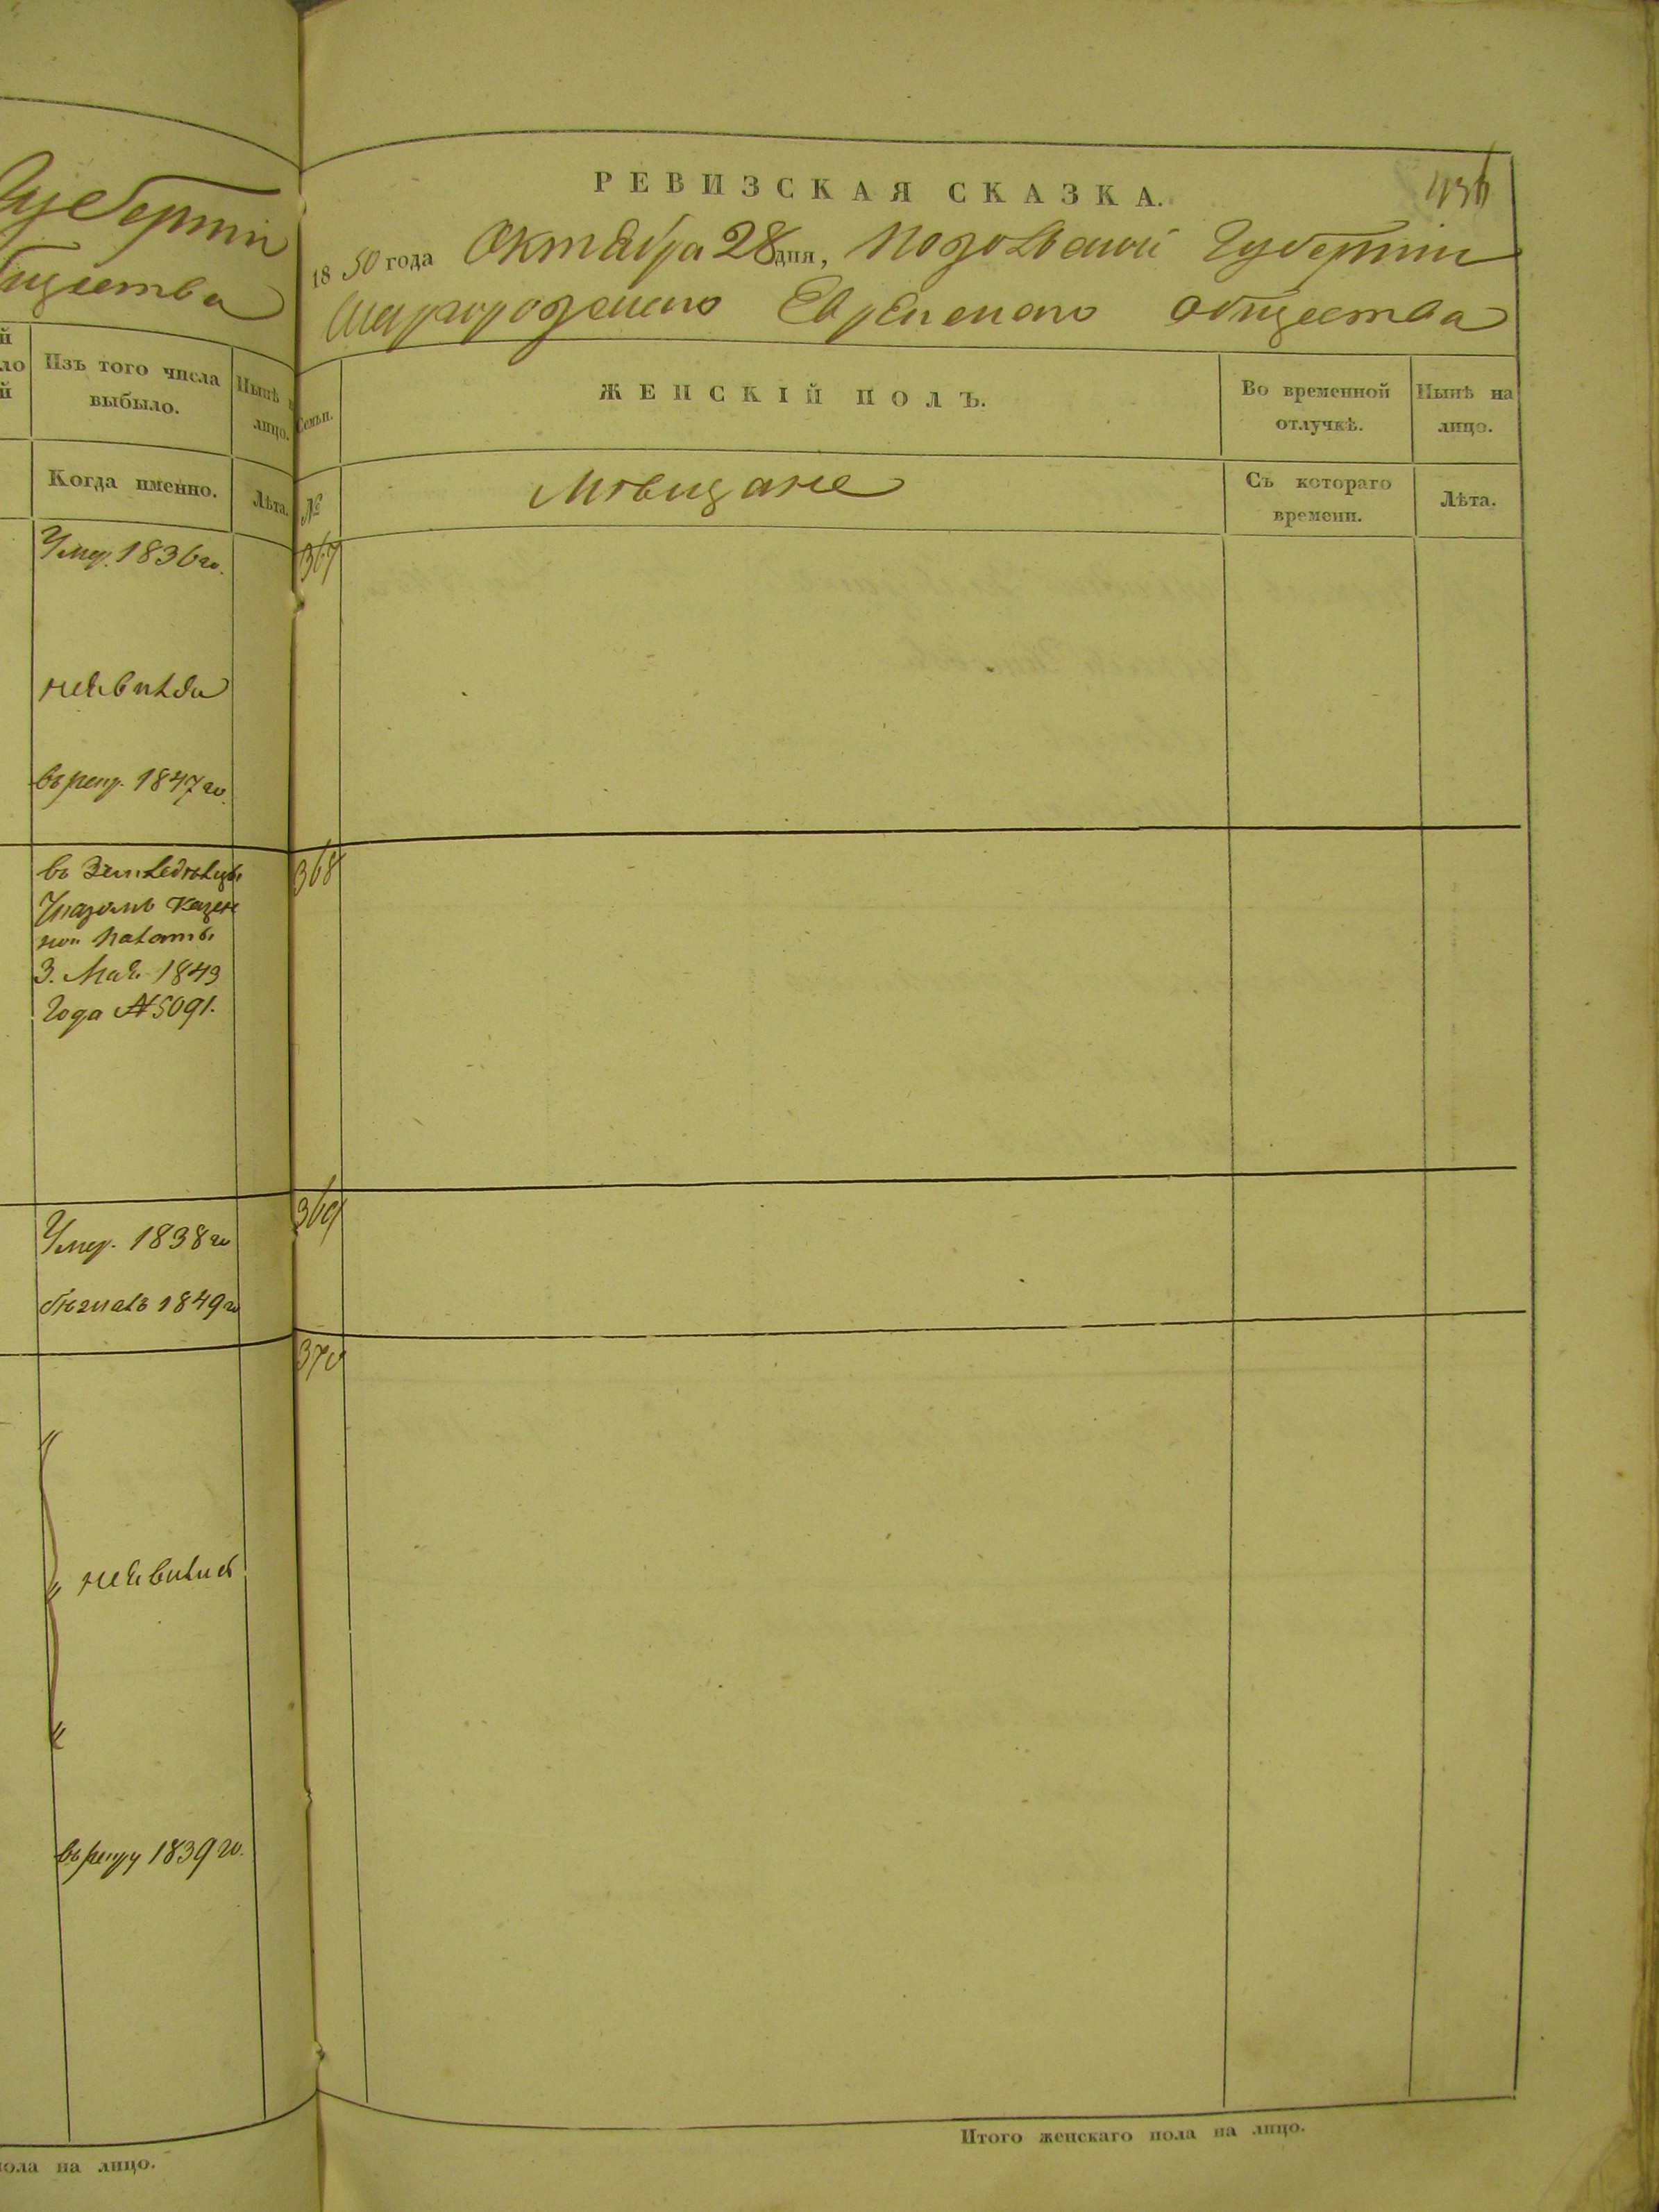 Губерніи
бщества
й
ло
й
Изъ того числа
выбыло.
Нынѣ н
лицо.
Когда именно.
Лѣта.
Умер. 1836 го.
неявился
въ рекр. 1847 го.
въ Земледѣльцы
Указомъ Казен
ной Палаты
3. Мая 1843
Года № 5091.
Умер. 1838 го
бѣжалъ 1849 го
неявились
въ рекру 1839 го.
пола на лицо.
436
РЕВИЗСКАЯ СКАЗКА.
1850 года Октября 28 дня, Подольской Губерніи
Шаргородскаго Еврейскаго общества
Семьи.
ЖЕНСКІЙ ПОЛЪ.
Во временной
отлучкѣ.
Нынѣ на
лицо.
№
Мѣщане
Съ котораго
времени.
Лѣта.
367
368
369
370
Итого женскаго пола на лицо.